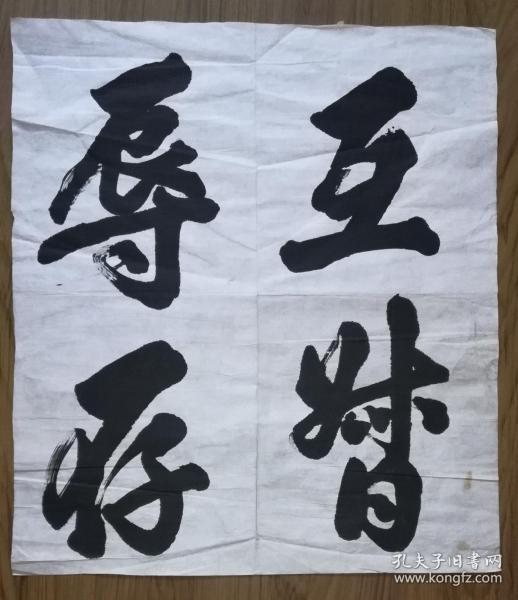 互
辱存
孔夫子旧书网
www.kongfz.com